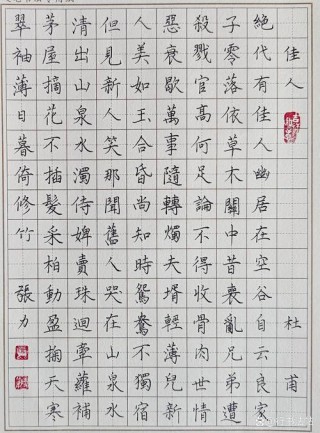 佳人 杜甫
絕代有佳人幽居在空谷自云良家
子零落依草木關中昔喪亂兄弟遭
殺戮官高何足論不得收骨肉世情
惡衰歇萬事隨轉燭夫婿輕薄兒新
人美如玉合昏尚知時鴛鴦不獨宿
但見新人笑那聞舊人哭在山泉水
清出山泉水濁侍婢賣珠迴牽蘿補
茅屋摘花不插髮采柏動盈掬天寒
翠袖薄日暮倚修竹 張力